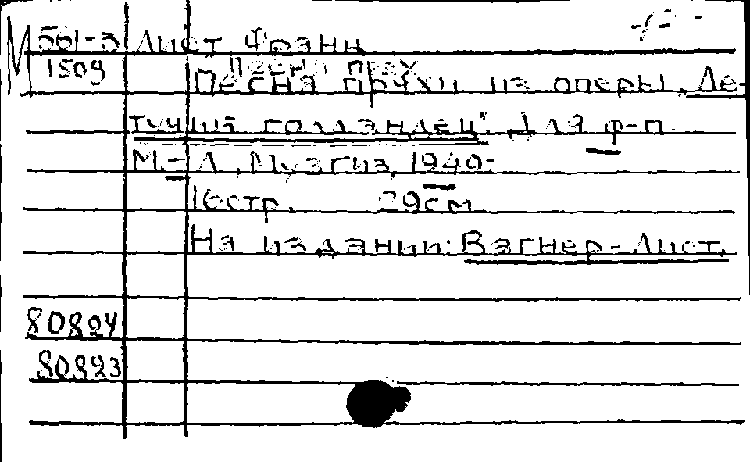 М 561-5 Лист Франц
1509 Песня прях из оперы „Ле-
тучий голландец". Для ф-п
М.-Л., Музгиз, 1940.
16стр. 29см
На издании: Вагнер-Лист.
80824
80823